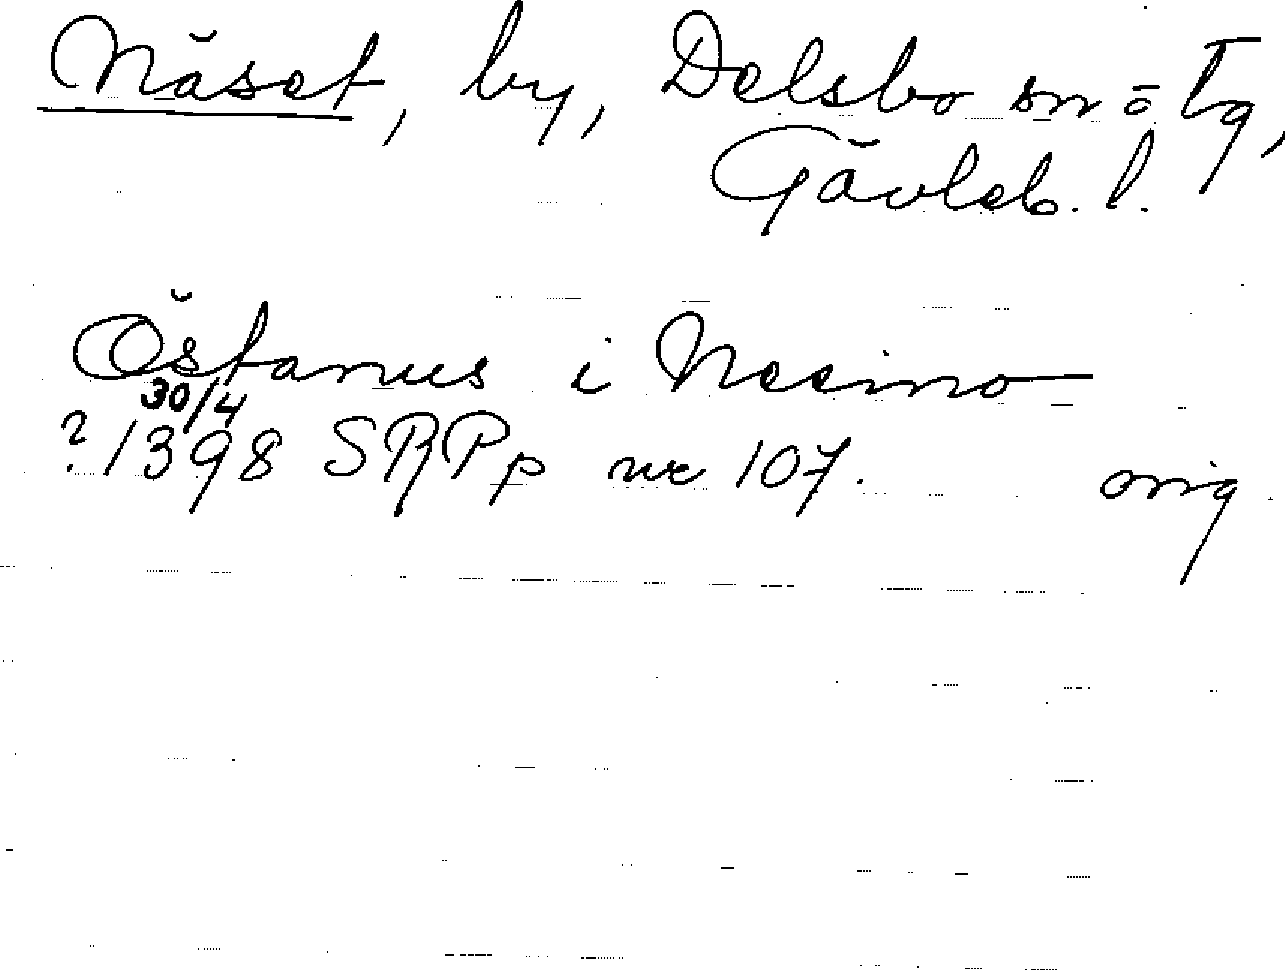 Näset, by, Delsbo sn o Tg,
Gävleb. l.
Östanus i Neeino
30/4
? 1398 SRPp nr 107. orig